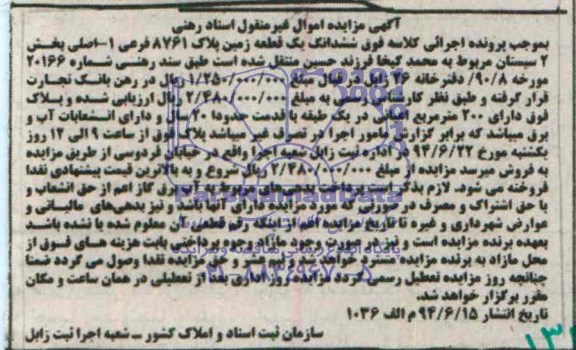 آگهی مزایده اموال غیرمنقول اسناد رهنی
بموجب پرونده اجرائی کلاسه فوق ششدانگ یک قطعه زمین پلاک ۸۷۶۱ فرعی ۱-اصلی بخش
۲ سیستان مربوط به محمد کیخا فرزند حسین منتقل شده است طبق سند رهنی شماره ۲۰۱۶۶
مورخه ۹۰/۸/ دفترخانه ۲۶ زابل در قبال مبلغ ۱/۲۵۰/۰۰۰/۰۰۰ ریال در رهن بانک تجارت
قرار گرفته و طبق نظر کارشناس رسمی به مبلغ ۲/۴۸۰/۰۰۰/۰۰۰ ریال ارزیابی شده و پلاک
فوق دارای ۲۰۰ مترمربع اعیانی در یک طبقه با قدمت حدودا ۲۰ سال و دارای انشعابات آب و
برق میباشد که برابر گزارش مامور اجرا در تصرف غیر میباشد پلاک فوق از ساعت ۹ الی ۱۲ روز
یکشنبه مورخ ۹۴/۶/۲۲ در اداره ثبت زابل شعبه اجرا واقع در خیابان فردوسی از طریق مزایده
به فروش میرسد مزایده از مبلغ ۲/۴۸۰/۰۰۰/۰۰۰ ریال شروع و به بالاترین قیمت پیشنهادی نقدا
فروخته می شود. لازم بذکر است پرداخت بدهی های مربوط به آب، برق گاز اعم از حق انشعاب و
یا حق اشتراک و مصرف در صورتی که مورد مزایده دارای آنها باشد و نیز بدهی های مالیاتی و
عوارض شهرداری و غیره تا تاریخ مزایده اعم از اینکه رقم قطعی آن معلوم شده یا نشده باشد
بعهده برنده مزایده است و نیز در صورت وجود مازاد وجوه پرداختی بابت هزینه های فوق از
محل مازاد به برنده مزایده مسترد خواهد شد و نیم عشر و حق مزایده نقدا وصول می گردد ضمنا
چنانچه روز مزایده تعطیل رسمی گردد مزایده روز اداری بعد از تعطیلی در همان ساعت و مکان
مقرر برگزار خواهد شد.
تاریخ انتشار ۹۴/۶/۱۵ م الف ۱۰۳۶
سازمان ثبت اسناد و املاک کشور ــ شعبه اجرا ثبت زابل